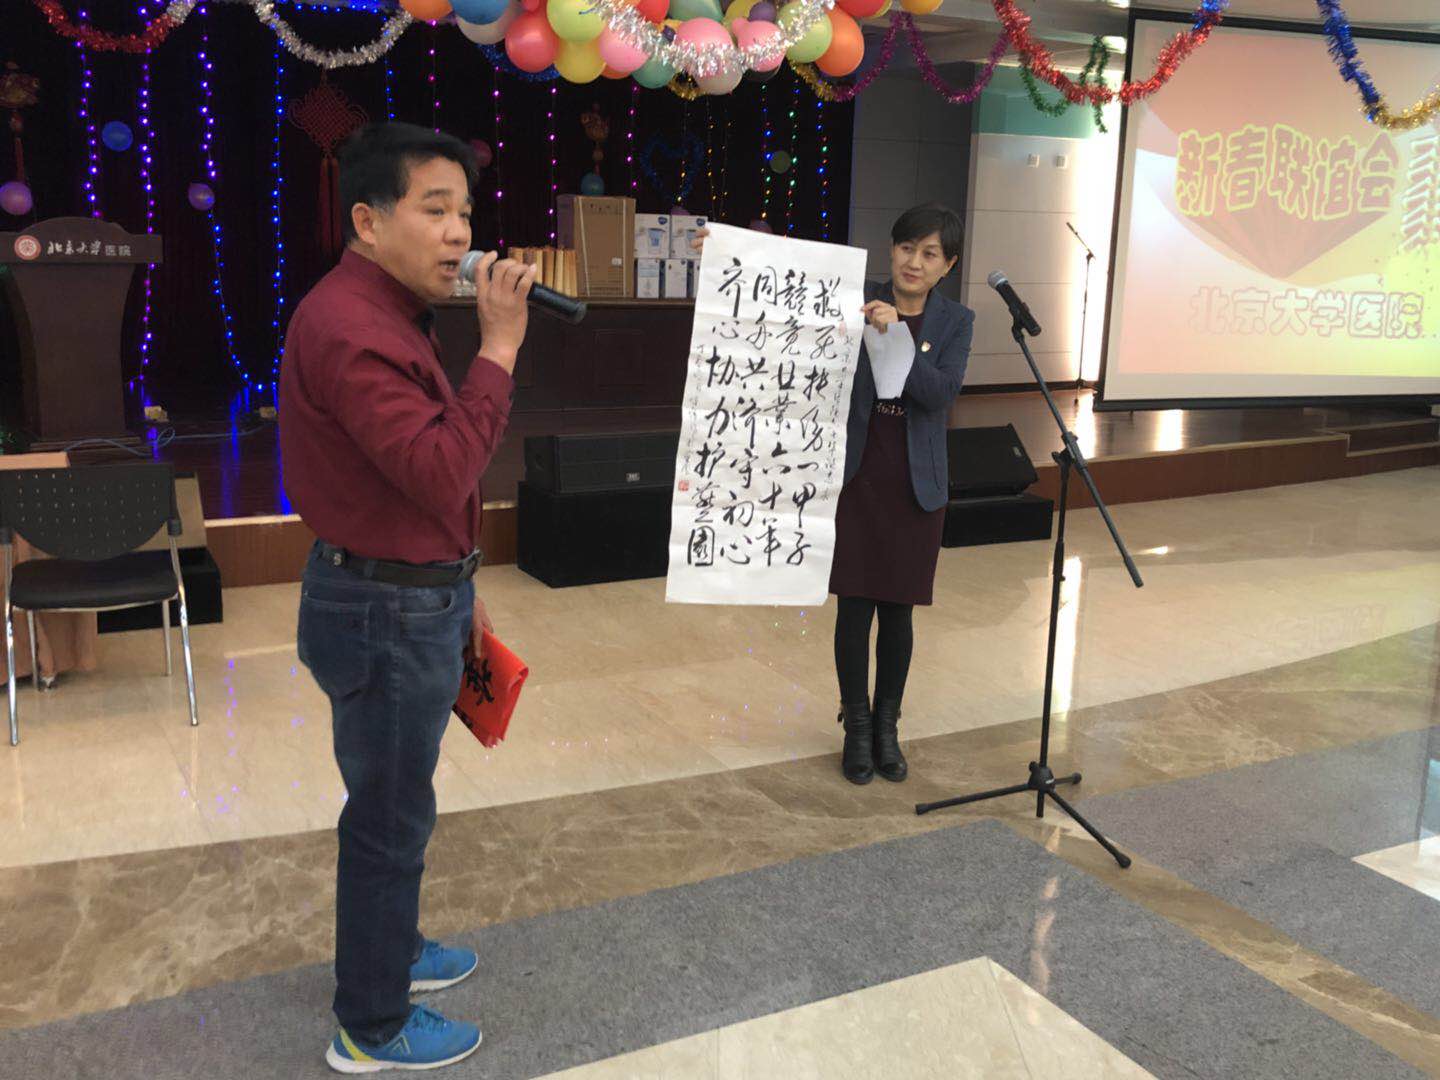 北京大学医院
救死扶伤一甲子
兢兢业业六十年
同舟共济守初心
齐心协力护燕园
新春联谊会
北京大学医院